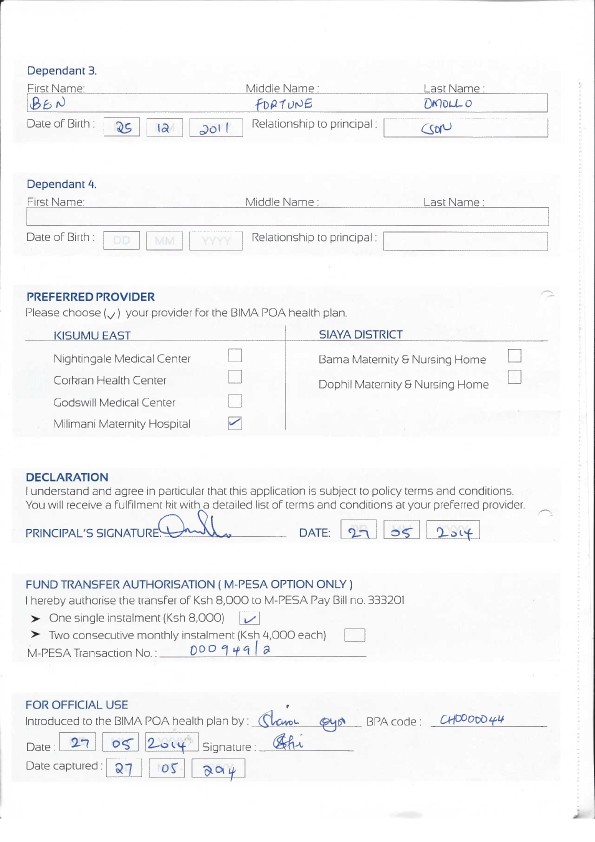 Dependant 3.
First Name: Middle Name : Last Name :
BEN FORTUNE OMOLLO
Date of Birth : 25 12 2011 Relationship to principal : SON
Dependant 4.
First Name: Middle Name : Last Name :
Date of Birth : DD MM YYYY Relationship to principal :
PREFERRED PROVIDER
Please choose (✓) your provider for the BIMA POA health plan.
KISUMU EAST SIAYA DISTRICT
Nightingale Medical Center Bama Maternity & Nursing Home
Corkran Health Center Dophil Maternity & Nursing Home
Godswill Medical Center
Milimani Maternity Hospital ✓
DECLARATION
I understand and agree in particular that this application is subject to policy terms and conditions.
You will receive a fulfilment kit with a detailed list of terms and conditions at your preferred provider.
PRINCIPAL'S SIGNATURE: DATE: 27 05 2014
FUND TRANSFER AUTHORISATION ( M-PESA OPTION ONLY )
I hereby authorise the transfer of Ksh 8,000 to M-PESA Pay Bill no. 333201
➤ One single instalment (Ksh 8,000) ✓
➤ Two consecutive monthly instalment (Ksh 4,000 each)
M-PESA Transaction No. :
FOR OFFICIAL USE
Introduced to the BIMA POA health plan by : BPA code : CH0000044
Date : 27 05 2014 Signature :
Date captured : 27 05 2014